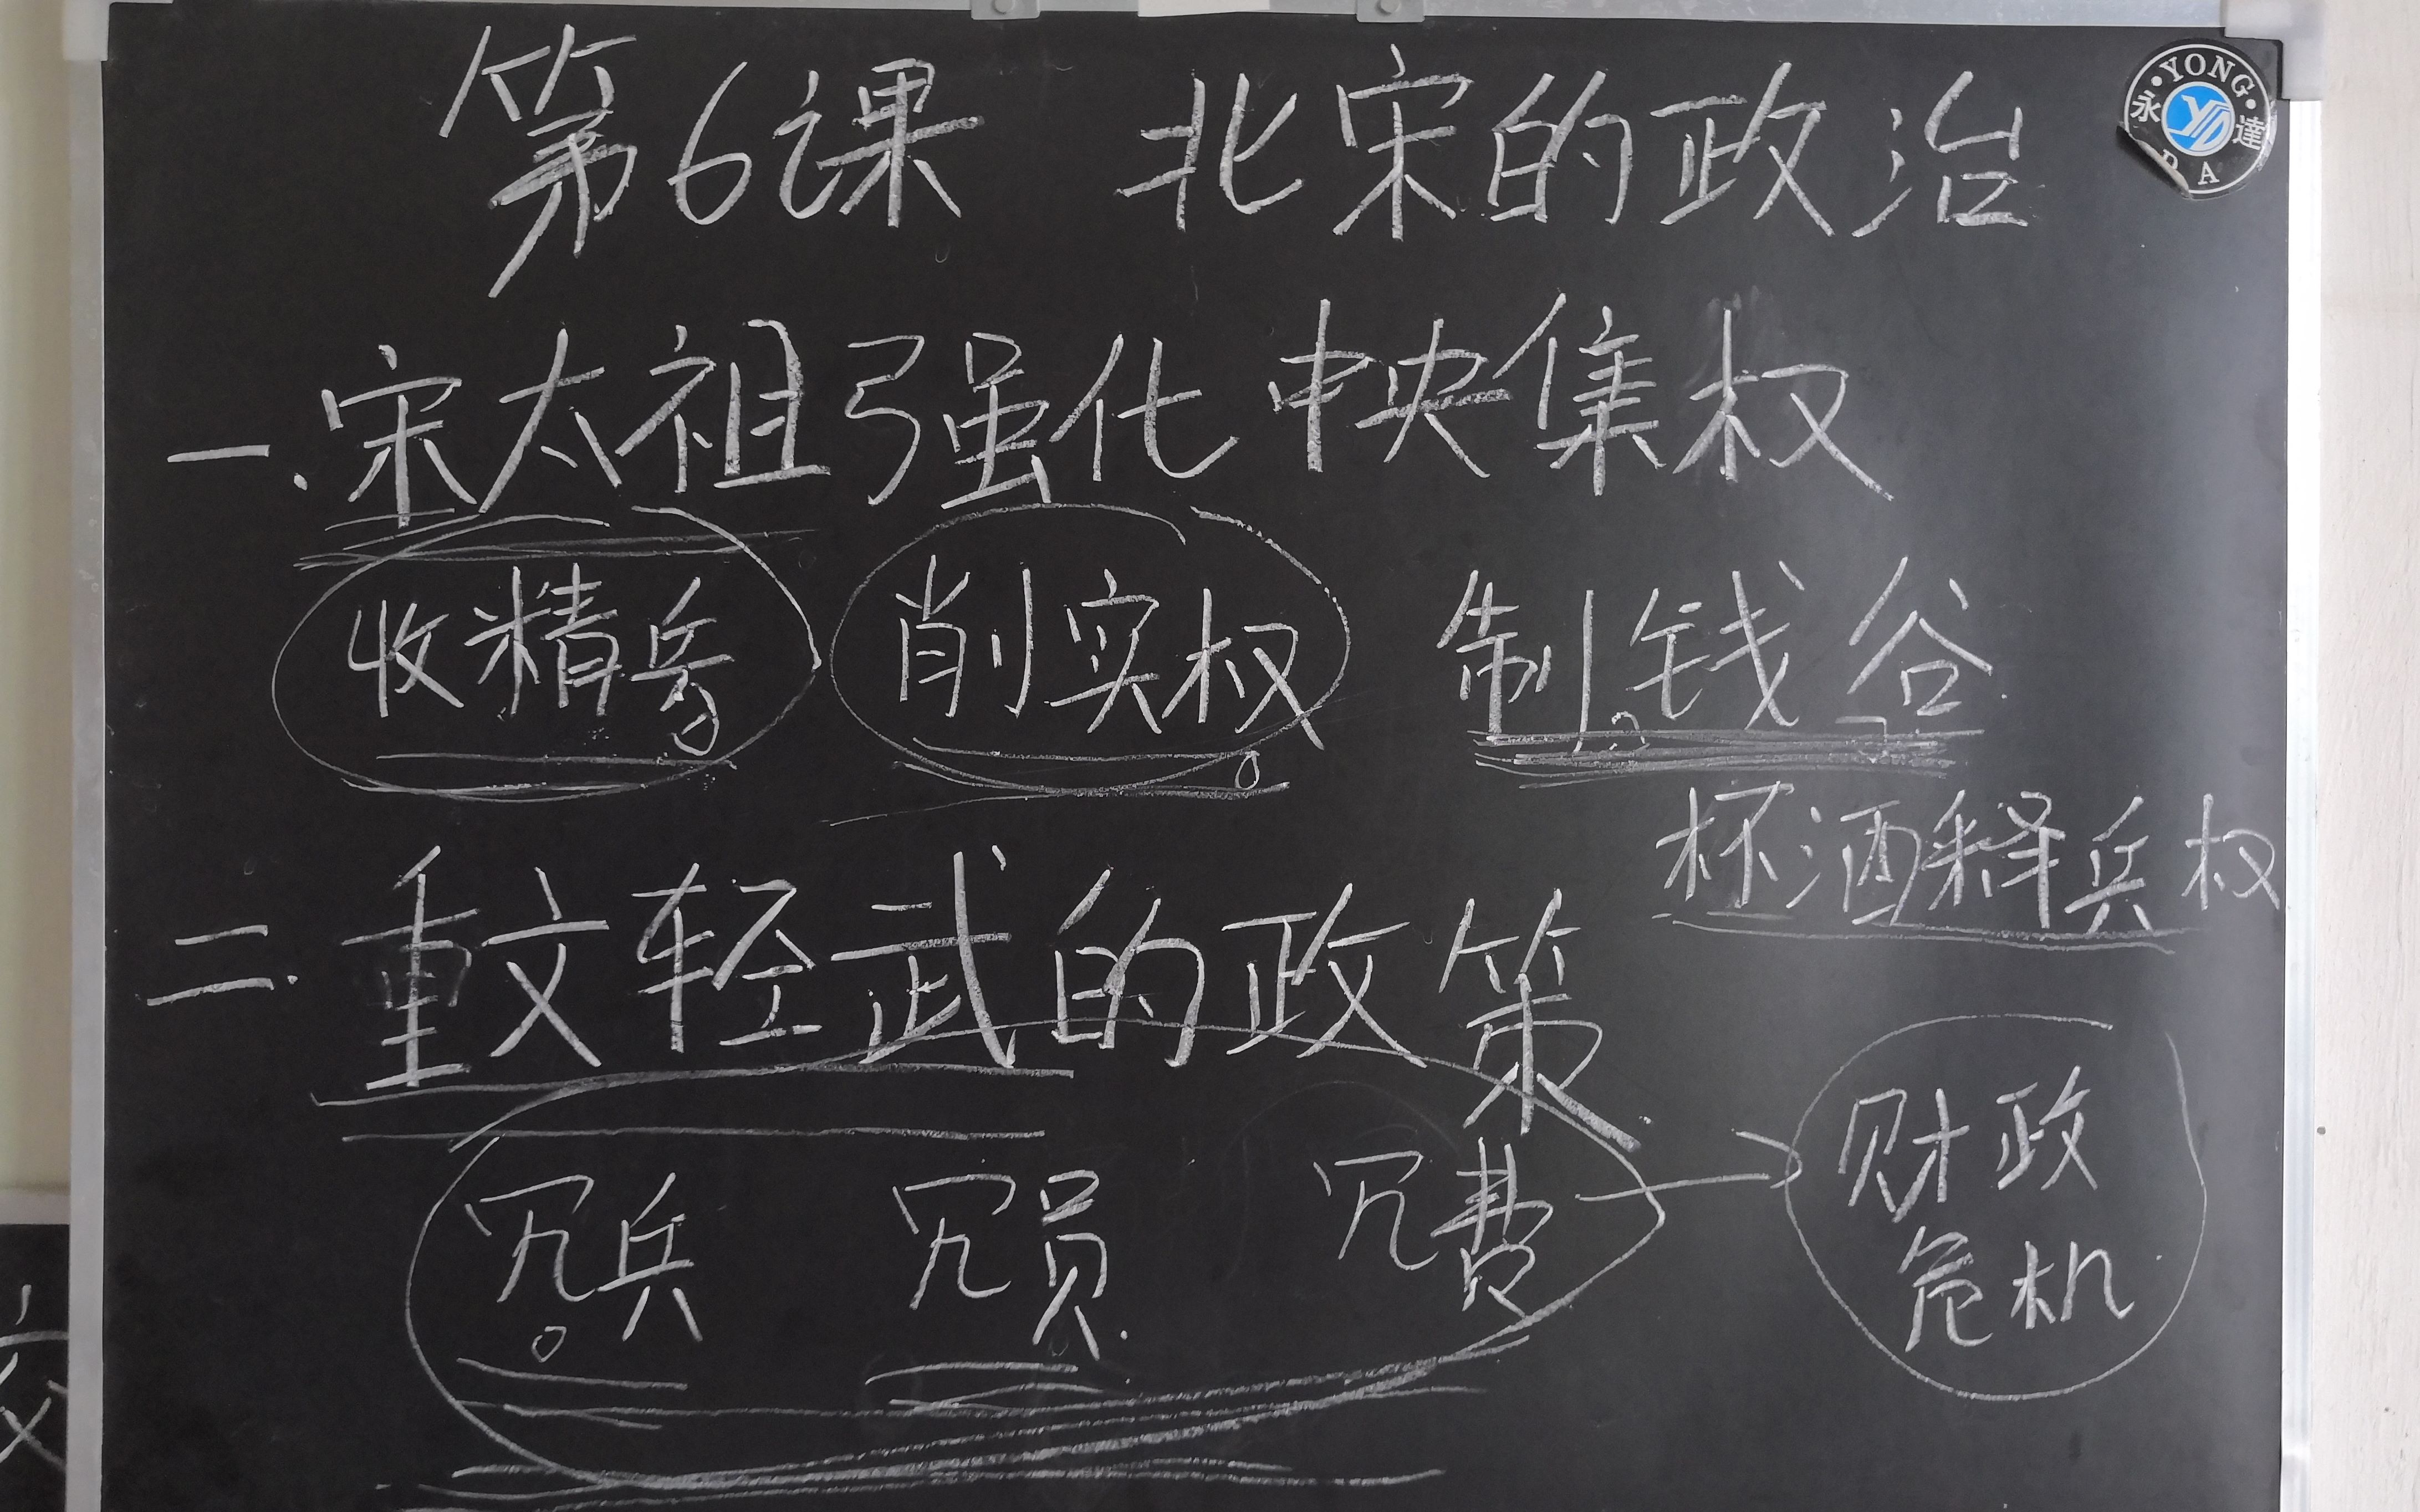 第6课 北宋的政治
YONG
永達
DA
一.宋太祖强化中央集权
收精兵 削实权 制钱谷
杯酒释兵权
二.重文轻武的政策
冗兵 冗员 冗费 → 财政
危机